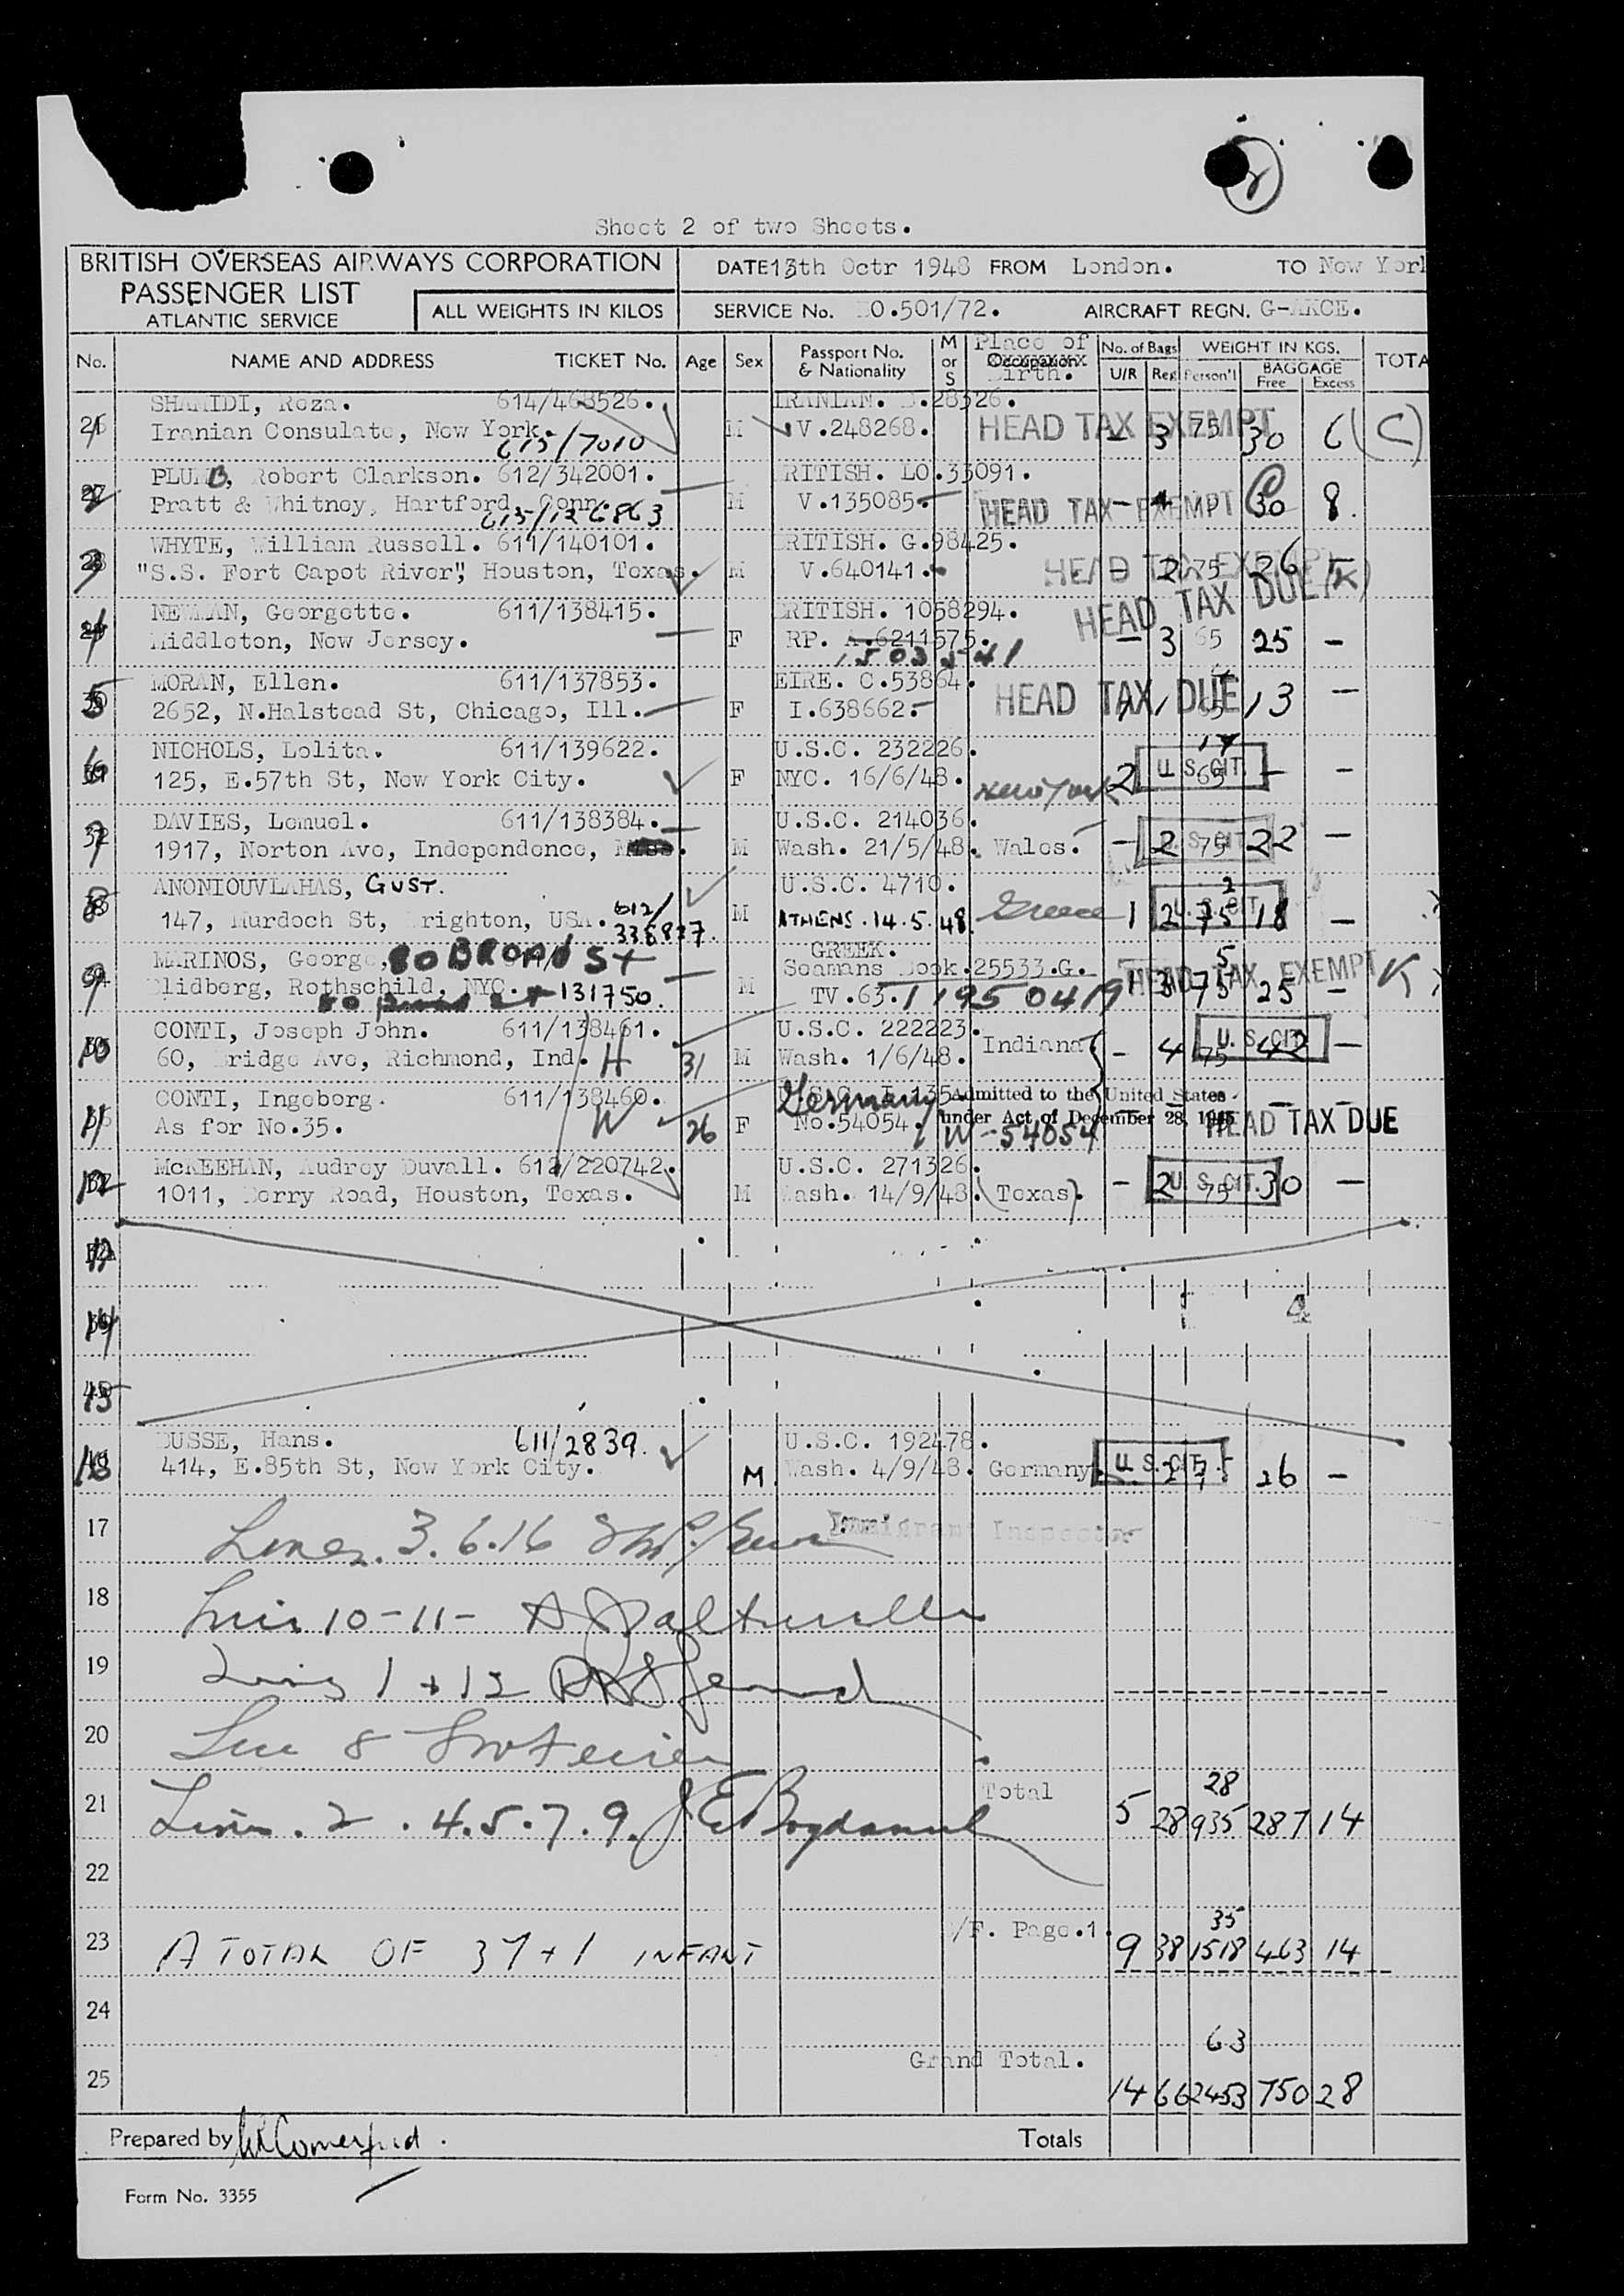 2
Sheet 2 of two Sheets.
BRITISH OVERSEAS AIRWAYS CORPORATION
PASSENGER LIST
ATLANTIC SERVICE
ALL WEIGHTS IN KILOS
DATE 13th Octr 1948 FROM London. TO New York
SERVICE No. 0.501/72. AIRCRAFT REGN. G-AKCE.
No. NAME AND ADDRESS TICKET No. Age Sex Passport No. & Nationality M or S Place of Birth. No. of Bags U/R Reg WEIGHT IN KGS. Person'l BAGGAGE Free Excess TOTA
SHAMIDI, Reza. 614/468526. IRANIAN. .28326.
1 Iranian Consulate, New York. 615/7010 M V.248268. HEAD TAX EXEMPT - 3 75 30 6 (C)
PLUMB, Robert Clarkson. 612/342001. BRITISH. LO.33091.
2 Pratt & Whitney, Hartford, Conn. 615/126863 M V.135085. HEAD TAX EXEMPT - 30 8.
WHYTE, William Russell. 611/140101. BRITISH. G.98425.
3 "S.S. Fort Capot River", Houston, Texas. M V.640141. HEAD TAX EXEMPT - 2 75 26 - (K)
NEWMAN, Georgette. 611/138415. BRITISH. 1058294.
4 Middleton, New Jersey. F RP. A.6211575. 1503541 HEAD TAX DUE - 3 65 25 -
MORAN, Ellen. 611/137853. EIRE. C.53864.
5 2652, N.Halstead St, Chicago, Ill. F I.638662. HEAD TAX DUE 1 1 65 13 -
NICHOLS, Lolita. 611/139622. U.S.C. 232226. 17
6 125, E.57th St, New York City. F NYC. 16/6/48. New York 2 U.S. CIT. 65 - -
DAVIES, Lemuel. 611/138384. U.S.C. 214036.
7 1917, Norton Ave, Independence, M Wash. 21/5/48. Wales. - 2 U.S. CIT. 75 22 -
ANONIOUVLAHAS, GUST. U.S.C. 4710. 2
8 147, Murdoch St, Brighton, USA. 612/338827. M ATHENS.14.5.48. Greece 1 2 U.S. CIT. 75 18 -
MARINOS, George, 80 BROAD St GREEK. Seamans Book.25533.G. 5
9 Blidberg, Rothschild, NYC. 131750. M TV.63.1195 0419 HEAD TAX EXEMPT 1 3 75 25 - K
CONTI, Joseph John. 611/138461. U.S.C. 222223.
10 60, Bridge Ave, Richmond, Ind. H 31 M Wash. 1/6/48. Indiana - 4 U.S. CIT. 75 42 -
CONTI, Ingeborg. 611/138460. Germany Admitted to the United States
11 As for No.35. W 26 F No.54054. under Act of December 28, 1945 W-54054 HEAD TAX DUE
McKEEHAN, Audrey Duvall. 612/220742. U.S.C. 271326.
12 1011, Berry Road, Houston, Texas. M Wash. 14/9/48. (Texas). - 2 U.S. CIT. 75 30 -
14 4
15
BUSSE, Hans. 611/2839. U.S.C. 192478.
16 414, E.85th St, New York City. M. Wash. 4/9/48. Germany U.S. CIT. - 2 75 26 -
17 Lines. 3.6.16 Immigrant Inspector
18 10-11-
19 Lines 1 + 12
20 Line 8
21 Lines. 2 . 4.5.7.9. Total 5 28 28 935 287 14
22
23 A TOTAL OF 37+1 INFANT /F. Page.1. 9 38 35 1518 463 14
24
Grand Total. 63
25 14 66 2453 750 28
Prepared by Totals
Form No. 3355